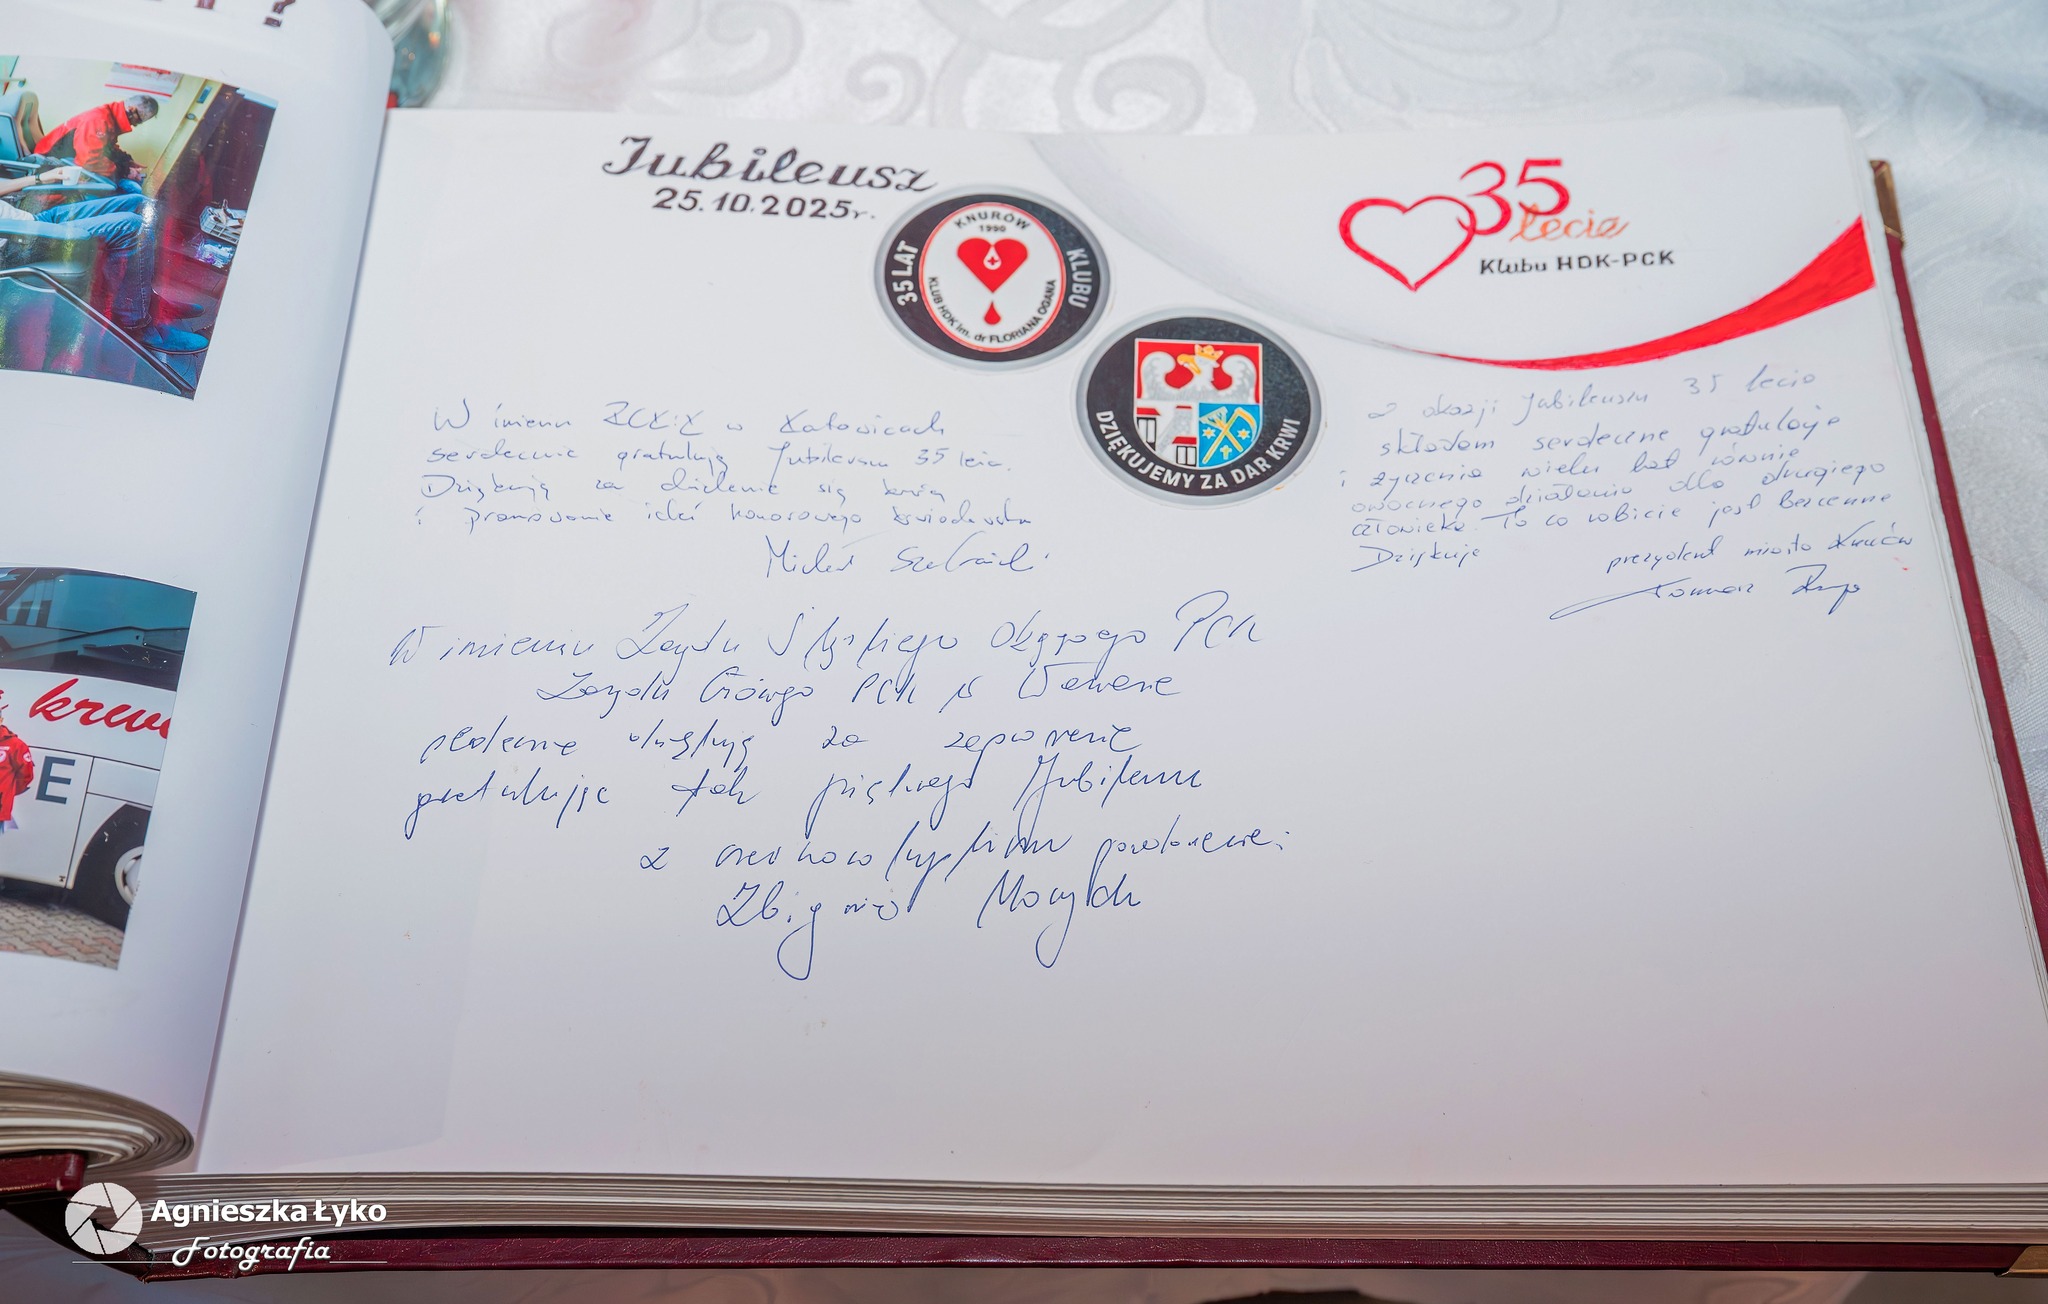 Jubileusz
25.10.2025r.
35 LAT KLUBU
KNURÓW
1990
KLUB HDK im. dr FLORIANA OGANA
DZIĘKUJEMY ZA DAR KRWI
35
lecie
Klubu HDK-PCK
W imieniu RCKiK w Katowicach
serdecznie gratuluję Jubileuszu 35 lecia.
Dziękuję za dzielenie się krwią
i promowanie idei honorowego krwiodawstwa
Z okazji Jubileuszu 35 lecia
składam serdeczne gratulacje
i życzenia wielu lat równie
owocnego działania dla drugiego
człowieka. To co robicie jest bezcenne
Dziękuję
prezydent miasta Knurów
Tomasz Rzepa
W imieniu Zarządu Śląskiego Okręgowego PCK
Zarządu Głównego PCK w Warszawie
serdecznie dziękuję za zaproszenie
gratulując tak pięknego Jubileuszu
z czerwonokrzyskim pozdrowieniem
Zbigniew
krew
E
Agnieszka Łyko
Fotografia